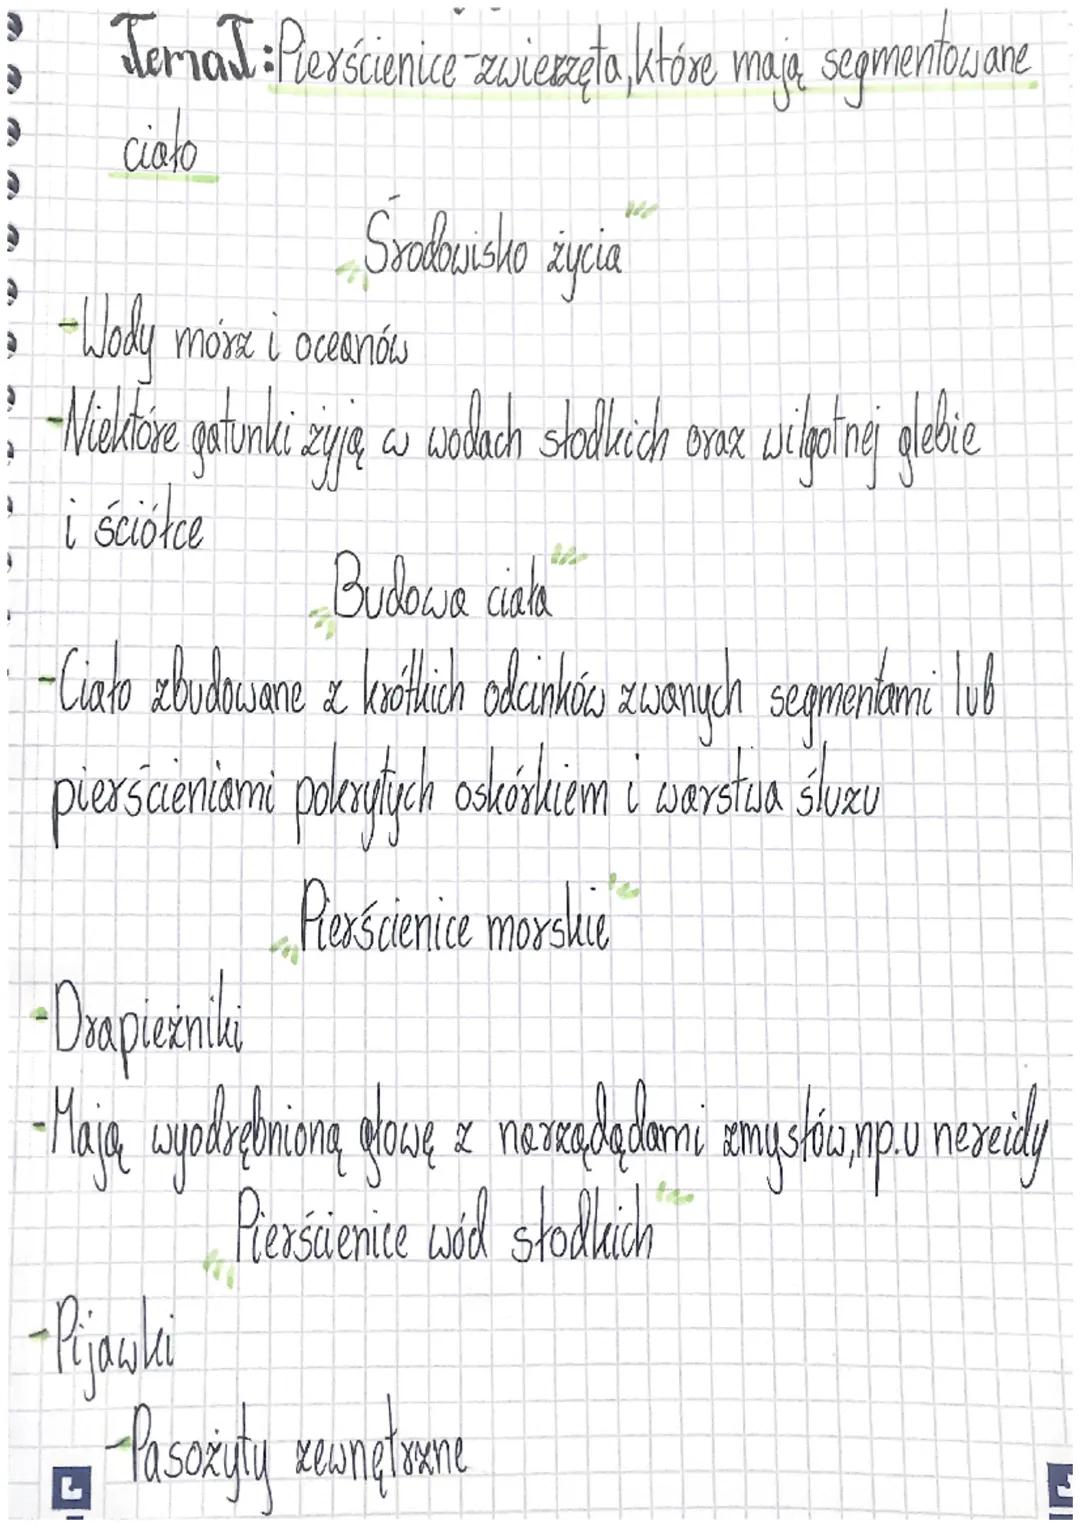 Temat: Pierścienice-zwierzęta, które mają segmentowane
ciało
Środowisko życia
-Wody mórz i oceanów
-Niektóre gatunki żyją w wodach słodkich oraz wilgotnej glebie
i ściółce
Budowa ciała
-Ciało zbudowane z krótkich odcinków zwanych segmentami lub
pierścieniami pokrytych oskórkiem i warstwa śluzu
Pierścienice morskie
-Drapieżniki
-Mają wyodrębnioną głowę z narządądami zmysłów, np. u nereidy
Pierścienice wód słodkich
-Pijawki
-Pasożyty zewnętrzne